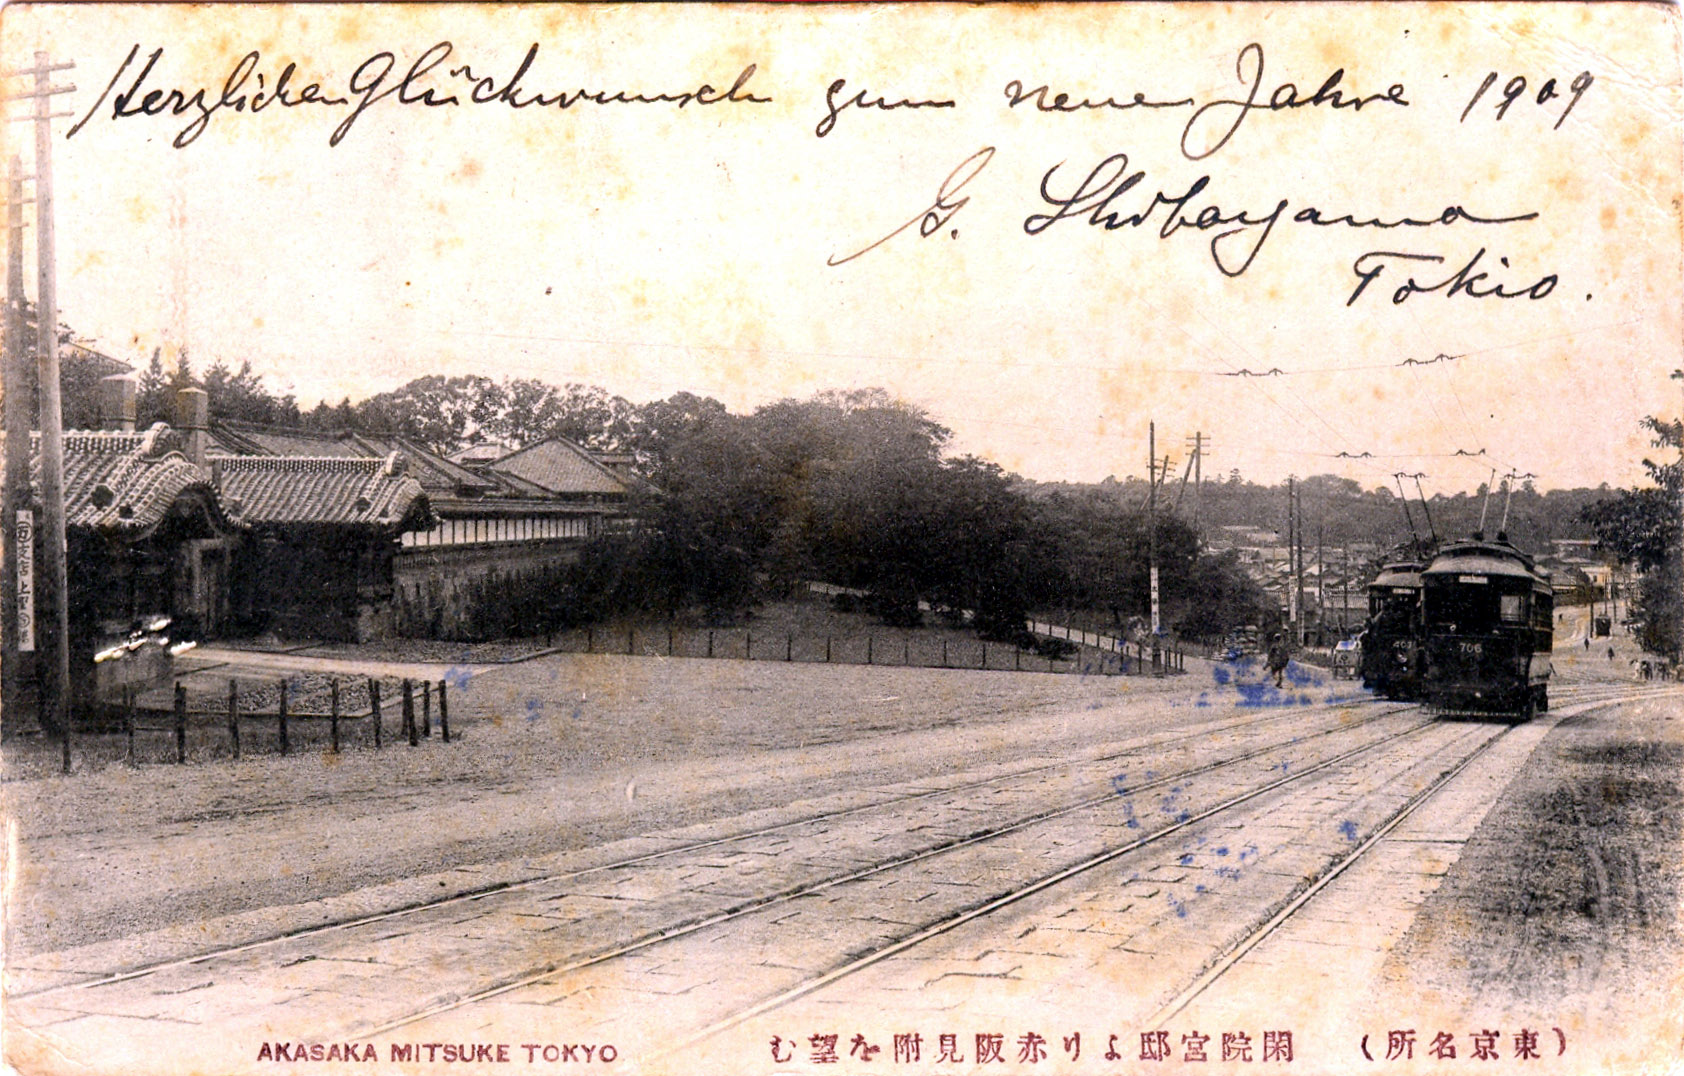 Herzlichen Glückwunsch zum neuen Jahre 1909
G. Shibayama
Tokio.
706
AKASAKA MITSUKE TOKYO
(東京名所)閑院宮邸より赤阪見附を望む